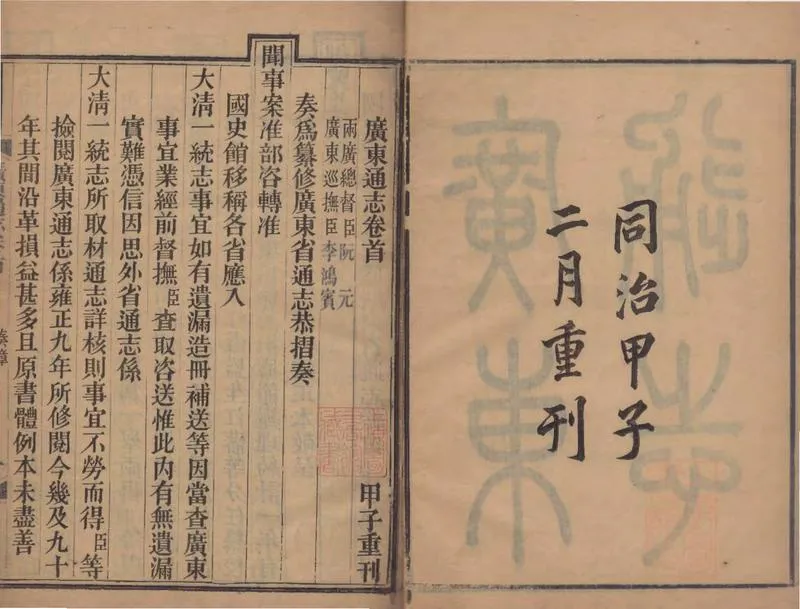 同治甲子
二月重刊
廣東通志卷首
甲子重刊
兩廣總督臣阮元
廣東巡撫臣李鴻賓
奏爲纂修廣東省通志恭摺奏
聞事案准部咨轉准
國史館移稱各省應入
大清一統志事宜如有遺漏造冊補送等因當查廣東
事宜業經前督撫臣查取咨送惟此內有無遺漏
實難憑信因思外省通志係
大清一統志所取材通志詳核則事宜不勞而得臣等
撿閱廣東通志係雍正九年所修閱今幾及九十
年其間沿革損益甚多且原書體例本未盡善